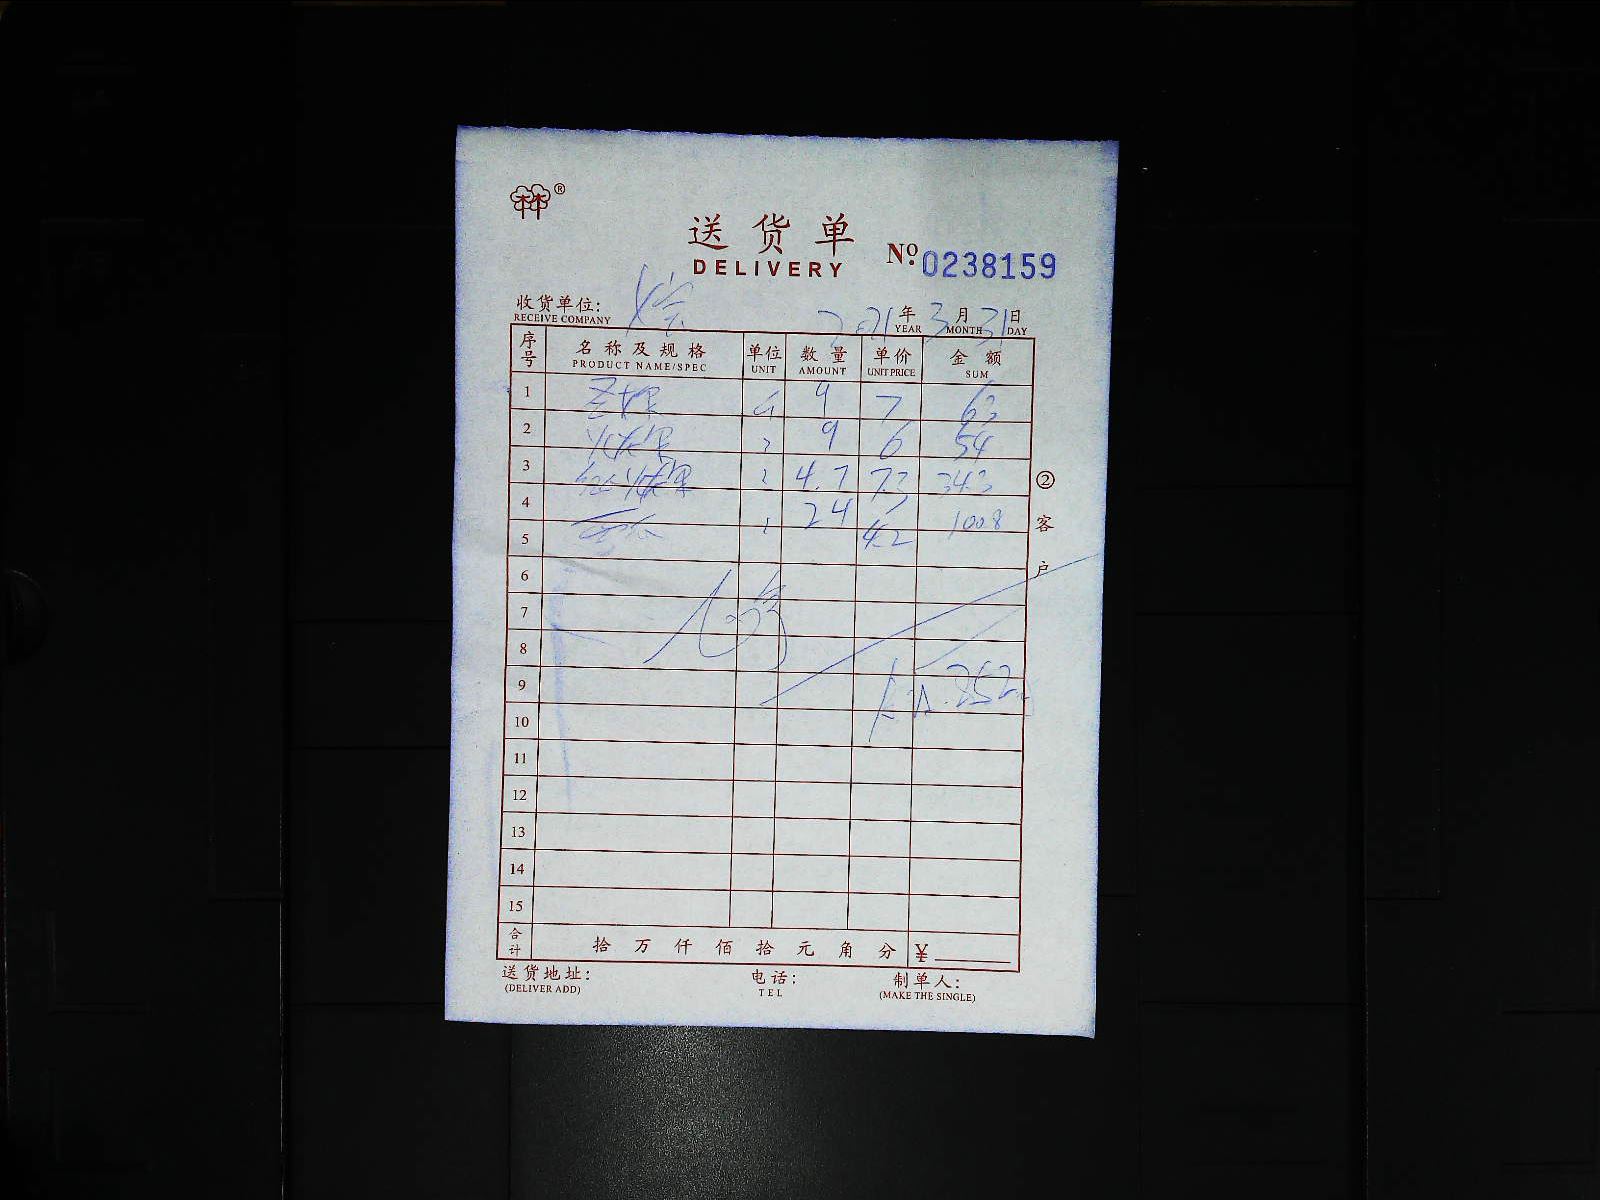 ®
送货单
DELIVERY
№ 0238159
收货单位:
RECEIVE COMPANY
2021年3月31日
YEAR MONTH DAY
序号 名称及规格 单位 数量 单价 金额
PRODUCT NAME/SPEC UNIT AMOUNT UNIT PRICE SUM
1 9 7 63
2 9 6 54
3 4.7 7.3 34.3
4 24 4.2 100.8
5
6
7
8
9
10
11
12
13
14
15
合计 拾 万 仟 佰 拾 元 角 分 ¥
送货地址: 电话: 制单人:
(DELIVER ADD) TEL (MAKE THE SINGLE)
② 客户